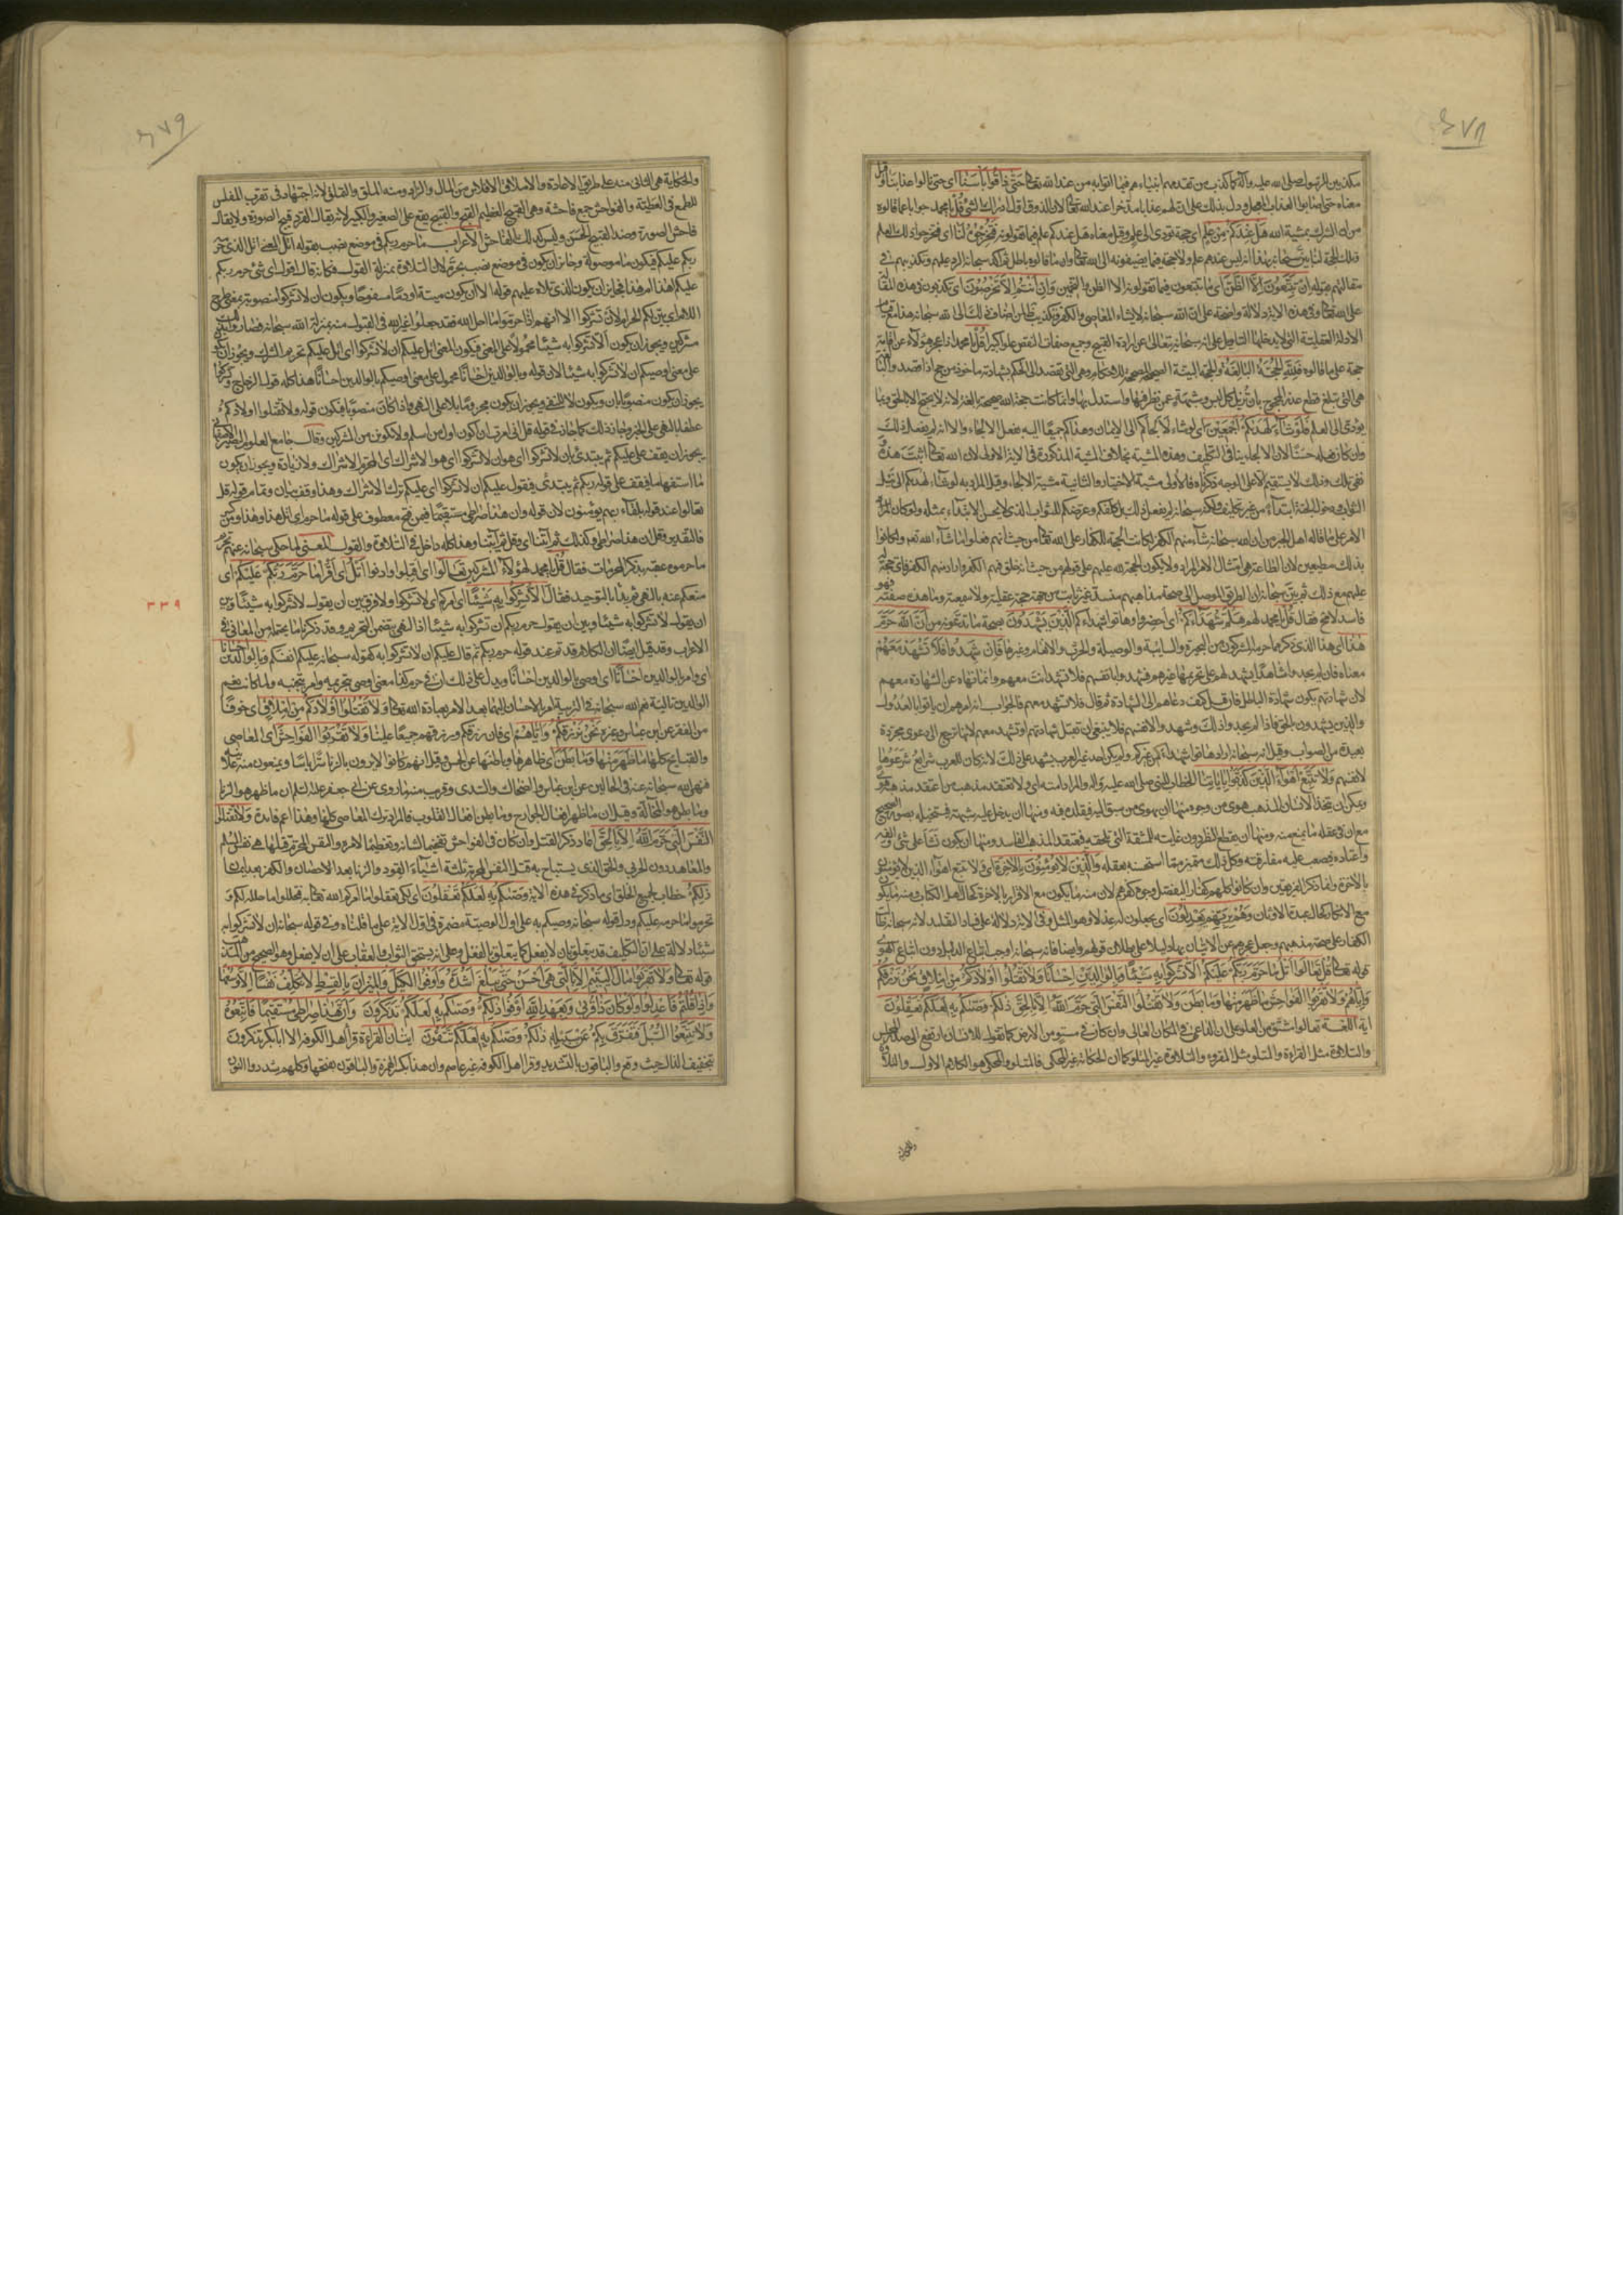 ٤٧٨
مكذبين للرسول صلى الله عليه وآله كما كذب من تقدمهم انبياءهم فيما اتوا به من عند الله تعالى حتى ذاقوا بأسنا اى حتى نالوا عذابنا وقيل
معناه حتى اصابوا العذاب المعجل ودل ذلك على ان لهم عذابا مدخرا عند الله تعالى لان الذوق اول ادراك الشئ قل يا محمد جوابا عما قالوه
من ان الشرك بمشية الله هل عندكم من علم اى حجة تودى الى علم وقيل معناه هل عندكم علم فيما تقولونه فتخرجوه لنا اى فتخرجوا ذلك العلم
مقالتهم بقوله ان تتبعون الا الظن اى ما تتبعون فيما تقولونه الا الظن والتخمين وان انتم الا تخرصون اى تكذبون فى هذه المقالة
على الله تعالى وفى هذه الاية دلالة واضحة على ان الله سبحانه لا يشاء المعاصى والكفر وتكذيب ظاهر لمن اضاف ذلك الى الله سبحانه هذا مع قيام
حجة على ما قالوه فلله الحجة البالغة والحجة البينة الصحيحة المصححة للاحكام وهى التى تقصد الى الحكم بشهادته ماخوذة من حج اذا قصد والبالغة
هى التى تبلغ قطع عذر المحجوج بان تزيل كل لبس وشبهة عمن نظر فيها واستدل بها وانما كانت حجة الله صحيحة بالغة لانه لا يحتج الا بالحق وبما
يودى الى العلم فلو شاء لهديكم اجمعين اى لو شاء لالجأكم الى الايمان وهداكم جميعا اليه بفعل الالجاء الا انه لم يفعل ذلك
وان كان فعله حسنا لان الالجاء ينافى التكليف وهذه المشية بخلاف المشية المذكورة فى الاية الاولى لان الله تعالى اثبت هذه
ونفى تلك وذلك لا يستقيم الا على الوجه الذى ذكرناه فالاولى مشية الاختيار والثانية مشية الالجاء وقيل المراد به لو شاء لهديكم الى نيل
الثواب ودخول الجنة ابتداء من غير تكليف ولكنه سبحانه لم يفعل ذلك بل كلفكم وعرضكم للثواب الذى لا يحسن الابتداء بمثله ولو كان
الامر على ما قاله اهل الجبر من ان الله سبحانه شاء منهم الكفر لكانت الحجة للكفار على الله تعالى من حيث انهم فعلوا ما شاء الله تعالى ولكانوا
بذلك مطيعين لان الطاعة هى امتثال الامر المراد ولا يكون الحجة لله عليهم على قولهم من حيث انه خلق فيهم الكفر واراد منهم الكفر فاى حجة
عليهم مع ذلك ثم بين سبحانه ان الطريق الموصل الى صحة مذاهبهم مفسد غير ثابت من جهة حجة عقلية ولا سمعية وما هذه صفته فهو
فاسد لا محالة فقال قل يا محمد لهم هلم شهداءكم اى احضروا وهاتوا شهداءكم الذين يشهدون بصحة ما تدعونه من ان الله حرم
هذا اى هذا الذى ذكر مما حرمه المشركون من البحيرة والسائبة والوصيلة والحرث والانعام وغيرها فان شهدوا فلا تشهد معهم
معناه فان لم يجدوا شاهدا يشهد لهم على تحريمها غيرهم فشهدوا بانفسهم فلا تشهد انت معهم وانما نهاه عن الشهادة معهم
لان شهادتهم يكون شهادة بالباطل فان قيل كيف دعاهم الى الشهادة ثم قال فلا تشهد معهم فالجواب انه امرهم ان ياتوا بالعدول
والذين يشهدون بالحق فاذا لم يجدوا ذلك وشهدوا لانفسهم فلا ينبغى ان تقبل شهادتهم او تشهد معهم لانها ترجع الى دعوى مجردة
بعيدة من الصواب وقيل انه سبحانه اراد هاتوا شهداء من غيركم ولم يكن احد غير العرب يشهد على ذلك لانه كان للعرب شرايع شرعوها
لانفسهم ولا تتبع اهواء الذين كذبوا باياتنا الخطاب للنبى صلى الله عليه وآله والمراد امته اى ولا تعتقد مذهب من اعتقد مذهبه هوى
ويمكن ان يتخذ الانسان المذهب هوى من وجوه منها ان يهوى من سبق اليه فيقلده فيه ومنها ان يدخل عليه شبهة فيتخيله بصورة الصحيح
مع ان فى عقله ما يمنع منه ومنها ان يقطع النظر دون غايته للمشقة التى تلحقه فيعتقد المذهب الفاسد ومنها ان يكون نشأ على شئ والفه
واعتاده فيصعب عليه مفارقته وكل ذلك متميز مما استحسنه بعقله والذين لا يؤمنون بالاخرة اى ولا تتبع اهواء الذين لا يؤمنون
بالاخرة وانما ذكر الفريقين وان كانوا كلهم كفارا ليفصل وجوه كفرهم لان منه ما يكون مع الاقرار بالاخرة كحال اهل الكتاب ومنه ما يكون
مع الانكار كحال عبدة الاوثان وهم بربهم يعدلون اى يجعلون له عدلا وهو المثل وفى الاية دلالة على فساد التقليد لانه سبحانه طالب
الكفار على صحة مذهبهم وجعل عجزهم عن الاتيان بها دليلا على بطلان قولهم وايضا فانه سبحانه اوجب اتباع الدليل دون اتباع الهوى
قوله تعالى قل تعالوا اتل ما حرم ربكم عليكم الا تشركوا به شيئا وبالوالدين احسانا ولا تقتلوا اولادكم من املاق نحن نرزقكم
واياهم ولا تقربوا الفواحش ما ظهر منها وما بطن ولا تقتلوا النفس التى حرم الله الا بالحق ذلكم وصيكم به لعلكم تعقلون
اية اللغة تعالوا مشتق من العلو على ان الداعى فى المكان العالى وان كان فى مستو من الارض كما تقول للانسان ارتفع الى صدر المجلس
والتلاوة مثل القراءة والمتلو مثل المقروء والتلاوة غير المتلو كما ان الحكاية غير المحكى فالمتلو والمحكى هو الكلام الاول والتلاوة
٤٧٩
والحكاية هى الثانى منه على طريق الاعادة والاملاق الافلاس من المال والزاد ومنه الملق والتملق لانه اجتهاد فى تقرب المفلس
للطمع فى العطية والفواحش جمع فاحشة وهى القبيح العظيم القبح والقبيح يقع على الصغير والكبير لانه يقال القرد قبيح الصورة ولا يقال
فاحش الصورة وضد القبيح الحسن وليس كذلك الفاحش الاعراب ما حرم ربكم فى موضع نصب بقوله اتل المعنى اتل الذى حرم
ربكم عليكم فيكون ما موصولة وجائز ان يكون فى موضع نصب بحرم لان التلاوة بمنزلة القول فكانه قال اقول اى شئ حرم ربكم
عليكم اهذا ام هذا فجائز ان يكون الذى تلاه عليهم قوله الا ان يكون ميتة او دما مسفوحا ويكون ان لا تشركوا منصوبة بمعنى طرح
اللام اى ابين لكم الحرام لان لا تشركوا لانهم اذا حرموا ما احل الله فقد جعلوا غير الله فى القبول منه بمنزلة الله سبحانه فصاروا بذلك
مشركين ويجوز ان يكون الا تشركوا به شيئا محمولا على المعنى فيكون المعنى اتل عليكم ان لا تشركوا اى اتل عليكم تحريم الشرك ويجوز ان يكون
على معنى اوصيكم ان لا تشركوا به شيئا لان قوله وبالوالدين احسانا محمول على معنى اوصيكم بالوالدين احسانا هذا كله قول الزجاج
يجوز ان يكون منصوبا بان ويكون لا للنفى ويجوز ان يكون مجزوما بلا على النهى واذا كان منصوبا فيكون قوله ولا تقتلوا اولادكم
عطفا بالنهى على الخبر وجاز ذلك كما جاز فى قوله قل انى امرت ان اكون اول من اسلم ولا تكونن من المشركين وقال جامع العلوم البصير
يجوز ان يقف على عليكم ثم يبتدئ بان لا تشركوا اى هو ان لا تشركوا اى هو الاشراك اى المحرم الاشراك ولا زيادة ويجوز ان يكون
ما استفهاما فيقف على قوله ربكم ثم يبتدئ فيقول عليكم ان لا تشركوا اى عليكم ترك الاشراك وهذا وقف بيان وتمام قوله قل
تعالوا عند قوله بلقاء ربهم يؤمنون لان قوله وان هذا صراطى مستقيما فيمن فتح معطوف على قوله ما حرم اى اتل هذا وهذا ومن كسر
فالتقدير وقل ان هذا صراطى وكذلك ثم آتينا اى وقل ثم آتينا وهذا كله داخل فى التلاوة والقول المعنى لما حكى سبحانه عنهم تحريم
ما حرموه عقبه بذكر المحرمات فقال قل يا محمد لهؤلاء المشركين تعالوا اى اقبلوا وادنوا اتل اى اقرأ ما حرم ربكم عليكم اى
منعكم عنه بالنهى ثم بدأ بالتوحيد فقال الا تشركوا به شيئا اى امركم اى لا تشركوا ولا فرق بين ان يقول لا تشركوا به شيئا وبين
٣٣٩
ان يقول لا تشركوا به شيئا وبين ان يقول حرم ربكم ان تشركوا به شيئا اذ النهى يتضمن التحريم وقد ذكرنا ما يحتمله من المعانى فى
الاعراب وقد قيل ايضا ان الكلام قد تم عند قوله حرم ربكم ثم قال عليكم ان لا تشركوا به كقوله سبحانه عليكم انفسكم وبالوالدين احسانا
اى وامر بالوالدين احسانا اى اوصى بالوالدين احسانا ويدل على ذلك ان فى حرم كذا معنى اوصى بتحريمه وامر بتجنبه ولما كانت نعم
الوالدين تالية نعم الله سبحانه فى الرتبة امر بالاحسان اليهما بعد الامر بعبادة الله تعالى ولا تقتلوا اولادكم من املاق اى خوفا
من الفقر عن ابن عباس وغيره نحن نرزقكم واياهم اى فان رزقكم ورزقهم جميعا علينا ولا تقربوا الفواحش اى المعاصى
والقبايح كلها ما ظهر منها وما بطن اى ظاهرها وباطنها عن الحسن وقيل انهم كانوا لا يرون بالزنا سرا باسا ويمنعون منه علانية
فنهى الله سبحانه عنه فى الحالين عن ابن عباس والضحاك والسدى وقريب منه ما روى عن ابى جعفر عليه السلام ان ما ظهر هو الزنا
وما بطن هو المخالة وقيل ان ما ظهر افعال الجوارح وما بطن افعال القلوب فالمراد ترك المعاصى كلها وهذا اعم فائدة ولا تقتلوا
النفس التى حرم الله الا بالحق اعاد ذكر القتل وان كان فى الفواحش تفخيما لشانه وتعظيما لامره والنفس المحرم قتلها هى نفس المسلم
والمعاهد دون الحربى والحق الذى يستباح به قتل النفس المحرمة ثلثة اشياء القود والزنا بعد الاحصان والكفر بعد ايمان
ذلكم خطاب لجميع الخلق اى ما ذكر فى هذه الاية وصيكم به لعلكم تعقلون اى لكى تعقلوا ما امركم الله تعالى به فتحللوا ما حلله لكم و
تحرموا ما حرمه عليكم ودل قوله سبحانه وصيكم به على اول الوصية مضمرة فى اول الاية على ما قلناه وفى قوله سبحانه ان لا تشركوا به
شيئا دلالة على ان التكليف قد يتعلق بان لا يفعل كما يتعلق بالفعل وعلى انه يستحق الثواب والعقاب على ان لا يفعل وهو الصحيح من المذهب
قوله تعالى ولا تقربوا مال اليتيم الا بالتى هى احسن حتى يبلغ اشده واوفوا الكيل والميزان بالقسط لا نكلف نفسا الا وسعها
واذا قلتم فاعدلوا ولو كان ذا قربى وبعهد الله اوفوا ذلكم وصيكم به لعلكم تذكرون وان هذا صراطى مستقيما فاتبعوه
ولا تتبعوا السبل فتفرق بكم عن سبيله ذلكم وصيكم به لعلكم تتقون ايتان القراءة قرأ اهل الكوفة الا ابا بكر تذكرون
بتخفيف الذال حيث وقع والباقون بالتشديد وقرأ اهل الكوفة غير عاصم وان هذا بكسر الهمزة والباقون بفتحها وكلهم شدد وا النون